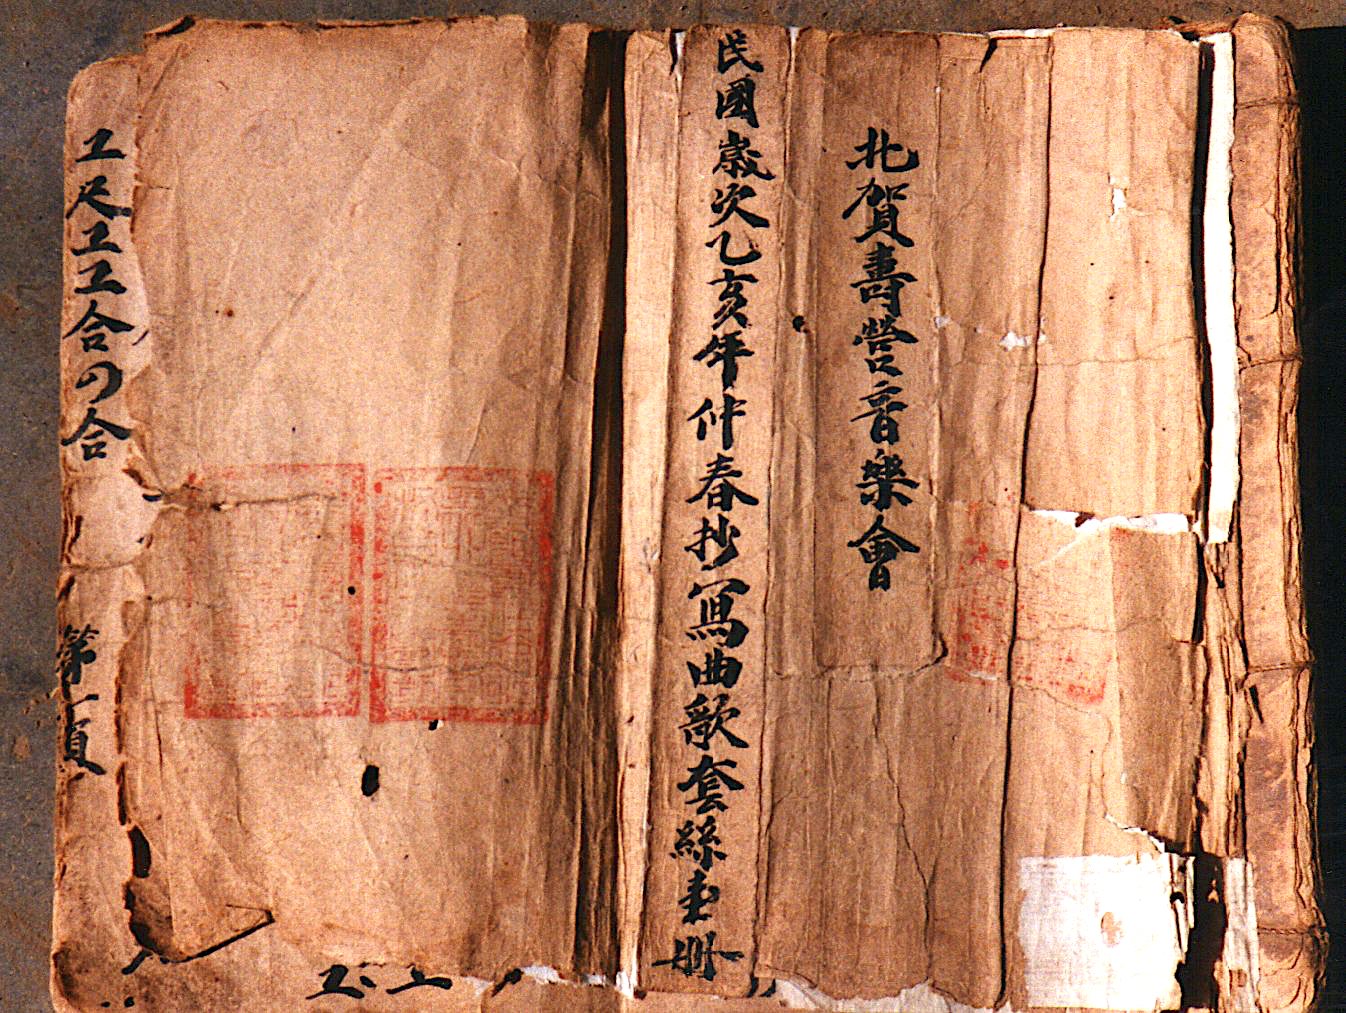 北賀壽營音樂會
民國歲次乙亥年仲春抄寫曲歌套絲畫册
工尺工工合の合
第一頁